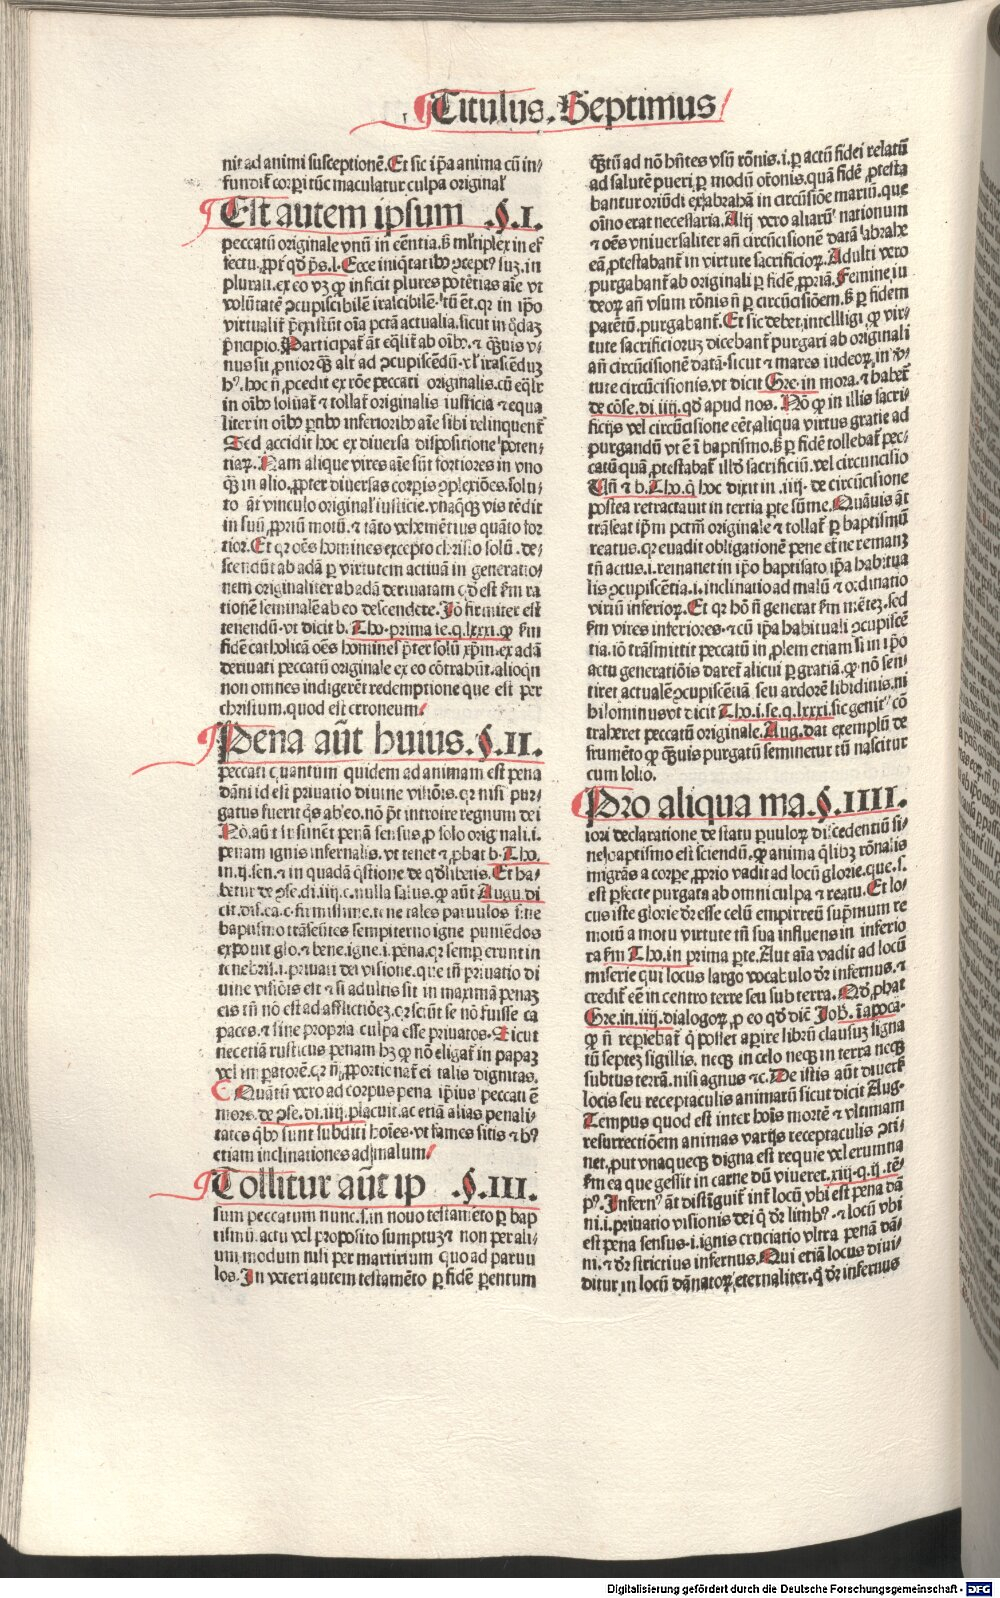 Titulus. Septimus
nit ad animi susceptionē. Et sic ip̄a anima cū in⸗
fundit̄ corpi tūc maculatur culpa originali
Est autem ipsum .§.I.
peccatū originale vnū in eēntia. sꝫ mltiplex in ef
fectu. ꝓpt̄ qd̓ p̄s. l. Ecce iniqͥtatibꝰ ꝯceptꝰ suꝫ. in
plurali. ex eo vꝫ ꝙ inficit plures potētias aīe vt
volūtatē ꝯcupiscibilē irascibilē. tū ēt. qꝛ in ip̄o
virtualit̄ p̄existūt oīa pctā actualia. sicut in qͦdaꝫ
pͥncipio. Participat̄ āt eqͣlit̄ ab oībꝰ. ⁊ qͣuis v⸗
nus sit ꝓnior qͣꝫ alt̄ ad ꝯcupiscēdū. vl̓ irascēduꝫ
hꝰ. hoc ñ ꝓcedit ex rōe peccati originalis. cū eqͣlr̄
in oībꝰ soluat̄ ⁊ tollat̄ originalis iusticia ⁊ equa
liter in oībꝰ ꝑtibꝰ inferioribꝰ aīe sibi relinquent̄
Sed accidit hoc ex diuersa dispositione poten⸗
tiaꝝ. Nam alique vires aīe sūt fortiores in vno
qͣꝫ in alio. ꝓpter diuersas corpis ꝯplexiōes. solu⸗
to āt vinculo original̓ iusticie. vnaqͣꝫ vis tēdit
in suū ꝓpriū motū. ⁊ tāto vehemētius quāto for
tior. Et qꝛ oēs homines excepto christo solū. de⸗
scendūt ab adā ꝑ virtutem actiuā in generatio⸗
nem originaliter ab adā deriuatam qd̓ est s̄m ra
tionē seminalē ab eo descendere. Iō firmiter est
tenendū. vt dicit b. Tho. prima se. q. lxxxi. ꝙ s̄m
fidē catholicā oēs homines p̄ter solū xp̄m. ex adā
deriuati peccatū originale ex eo cōtrahūt. alioqͥn
non omnes indigerēt redemptione que est per
christum. quod est erroneum
Pena aūt huius. §.II.
peccati quantum quidem ad animam est pena
dāni id est priuatio diuine visiōis. qꝛ nisi pur⸗
gatus fuerit qͥs ab eo. nō pōt introire regnum dei
Nō. aūt sustinēt penā sensus ꝓ solo originali. i.
penam ignis infernalis. vt tenet ⁊ ꝓbat b. Tho.
in. ij. sen. ⁊ in quadā qͣstione de qͦdlibetis. Et ha⸗
betur de ꝯse. di. iiij. c. nulla salus. ꝙ aūt Augu. di
cit. dis. ea. c. firmissime. tene tales paruulos sine
baptismo trāseūtes sempiterno igne puniēdos
exponit glo. ⁊ bene. igne. i. pena. qꝛ semꝑ erunt in
tenebris. i. priuati dei visione. que tn̄ priuatio di
uine visiōis est ⁊ si adultis sit in maximā penaꝫ
eis tn̄ nō est ad afflictiōeꝫ. qꝛ sciūt se nō fuisse ca
paces. ⁊ sine propria culpa esse priuatos. Sicut
nec etiā rusticus penam hꝫ ꝙ nō eligat̄ in papaꝫ
vel imꝑatorē. qꝛ ñ ꝓportionat̄ ei talis dignitas.
Quātū vero ad corpus pena ipsius peccati ē
mors. de ꝯse. di. iiij. placuit. ac etiā alias penali⸗
tates qͥbꝰ sunt subditi hoīes. vt fames sitis ⁊ hꝰ
etiam inclinationes ad malum
Tollitur aūt ip .§.III.
sum peccatum nunc. s. in nouo testamēto ꝑ bap
tismū. actu vel proposito sumptuꝫ ⁊ non per ali⸗
um modum nisi per martirium quo ad paruu
los. In veteri autem testamēto ꝑ fidē parentum
qͣꝫtū ad nō hn̄tes vsū rōnis. i. ꝑ actū fidei relatū
ad salutē pueri. ꝑ modū or̄onis. quā fidē ꝓtesta
bantur oriūdi ex abrahā in circūsiōe mariū. que
oīno erat necessaria. Alij vero aliarū nationum
⁊ oēs vniuersaliter añ circūcisionē datā abrahe
eā ꝓtestabant̄ in virtute sacrificioꝝ. Adulti vero
purgabant̄ ab originali ꝑ fidē ꝓpriā. Femine iu
deoꝝ añ vsum rōnis ñ ꝑ circūcisiōem. sꝫ ꝑ fidem
parētū. purgabant̄. Et sic debet intelligi ꝙ vir⸗
tute sacrificioruꝫ dicebant̄ purgari ab originali
añ circūcisionē datā. sicut ⁊ mares iudeoꝝ. in v̓⸗
tute circūcisionis. vt dicit Gre. in mora. ⁊ habet̄
de cōse. di. iiij. qd̓ apud nos. Nō ꝙ in illis sacri⸗
ficijs vel circūcisione eēt aliqua virtus gratie ad
purgandū vt ē ī baptismo. sꝫ ꝑ fidē tollebat̄ pec⸗
catū quā ꝓtestabat̄ illd̓ sacrificiū. vel circuncisio
Vn̄ ⁊ b. Tho. qͥ hoc dixit in. iiij. de circūcisione
postea retractauit in tertia ꝑte sūme. Quāuis āt
trāseat ip̄m pctm̄ originale ⁊ tollat̄ ꝑ baptismū
reatus. qꝛ euadit obligationē pene et̄ne remanꝫ
tn̄ actus. i. remanet in ip̄o baptisato ip̄a habitua
lis ꝯcupiscētia. i. inclinatio ad malū ⁊ ordinatio
viriū inferioꝝ. Et qꝛ hō ñ generat s̄m mēteꝫ. sed
s̄m vires inferiores. ⁊ cū ip̄a habituali ꝯcupiscē
tia. iō trāsmittit peccatū in ꝓlem etiam si in ip̄o
actu generatiōis daret̄ alicui ꝑ gratiā. ꝙ nō sen⸗
tiret actualē ꝯcupiscētiā seu ardorē libidinis. ni
hilominus vt dicit Tho. i. se. q. lxxxi. sic genitꝰ cō
traheret peccatū originale. Aug. dat exemplū de
frumēto ꝙ qͣꝫuis purgatū seminetur tn̄ nascitur
cum lolio.
Pro aliqua ma.§.IIII.
iori declaratione de statu puuloꝝ discedentiū si⸗
ne baptismo est sciendū. ꝙ anima qͥlibꝫ rōnalis
migrās a corpe. ꝓprio vadit ad locū glorie. que. s.
est ꝑfecte purgata ab omni culpa ⁊ reatu. Et lo⸗
cus iste glorie dr̄ esse celū empireū supͥmum re
motū a motu virtute tn̄ sua influens in inferio
ra s̄m Tho. in prima ꝑte. Aut aīa vadit ad locū
miserie qui locus largo vocabulo dr̄ infernus. ⁊
credit̄ eē in centro terre seu sub terra. Qd̓ ꝓbat
Gre. in. iiij. dialogoꝝ. ꝑ eo qd̓ dic̄ Joh̓. ī apoca⸗
ꝙ ñ reꝑiebat̄ qͥ posset aperire librū clausuꝫ signa
tū septeꝫ sigillis. necꝫ in celo necꝫ in terra necꝫ
subtus terrā. nisi agnus ⁊c. De istis aūt diuersis
locis seu receptaculis animarū sicut dicit Aug.
Tempus quod est inter hoīs mortē ⁊ vltimam
resurrectiōem animas varijs receptaculis ꝯti⸗
net. put vnaquecꝫ digna est requie vel erumna
s̄m ea que gessit in carne dū viueret. xiij. q. ij. tē⸗
pꝰ. Infernꝰ āt distīguit̄ int̄ locū vbi est pena dā
ni. i. priuatio visionis dei qͥ dr̄ limbꝰ. ⁊ locū vbi
est pena sensus. i. ignis cruciatio vltra penā dā⸗
ni. ⁊ dr̄ strictius infernus. Qui etiā locus diui⸗
ditur in locū dānatoꝝ eternaliter. qͥ dr̄ infernus
Digitalisierung gefördert durch die Deutsche Forschungsgemeinschaft - DFG